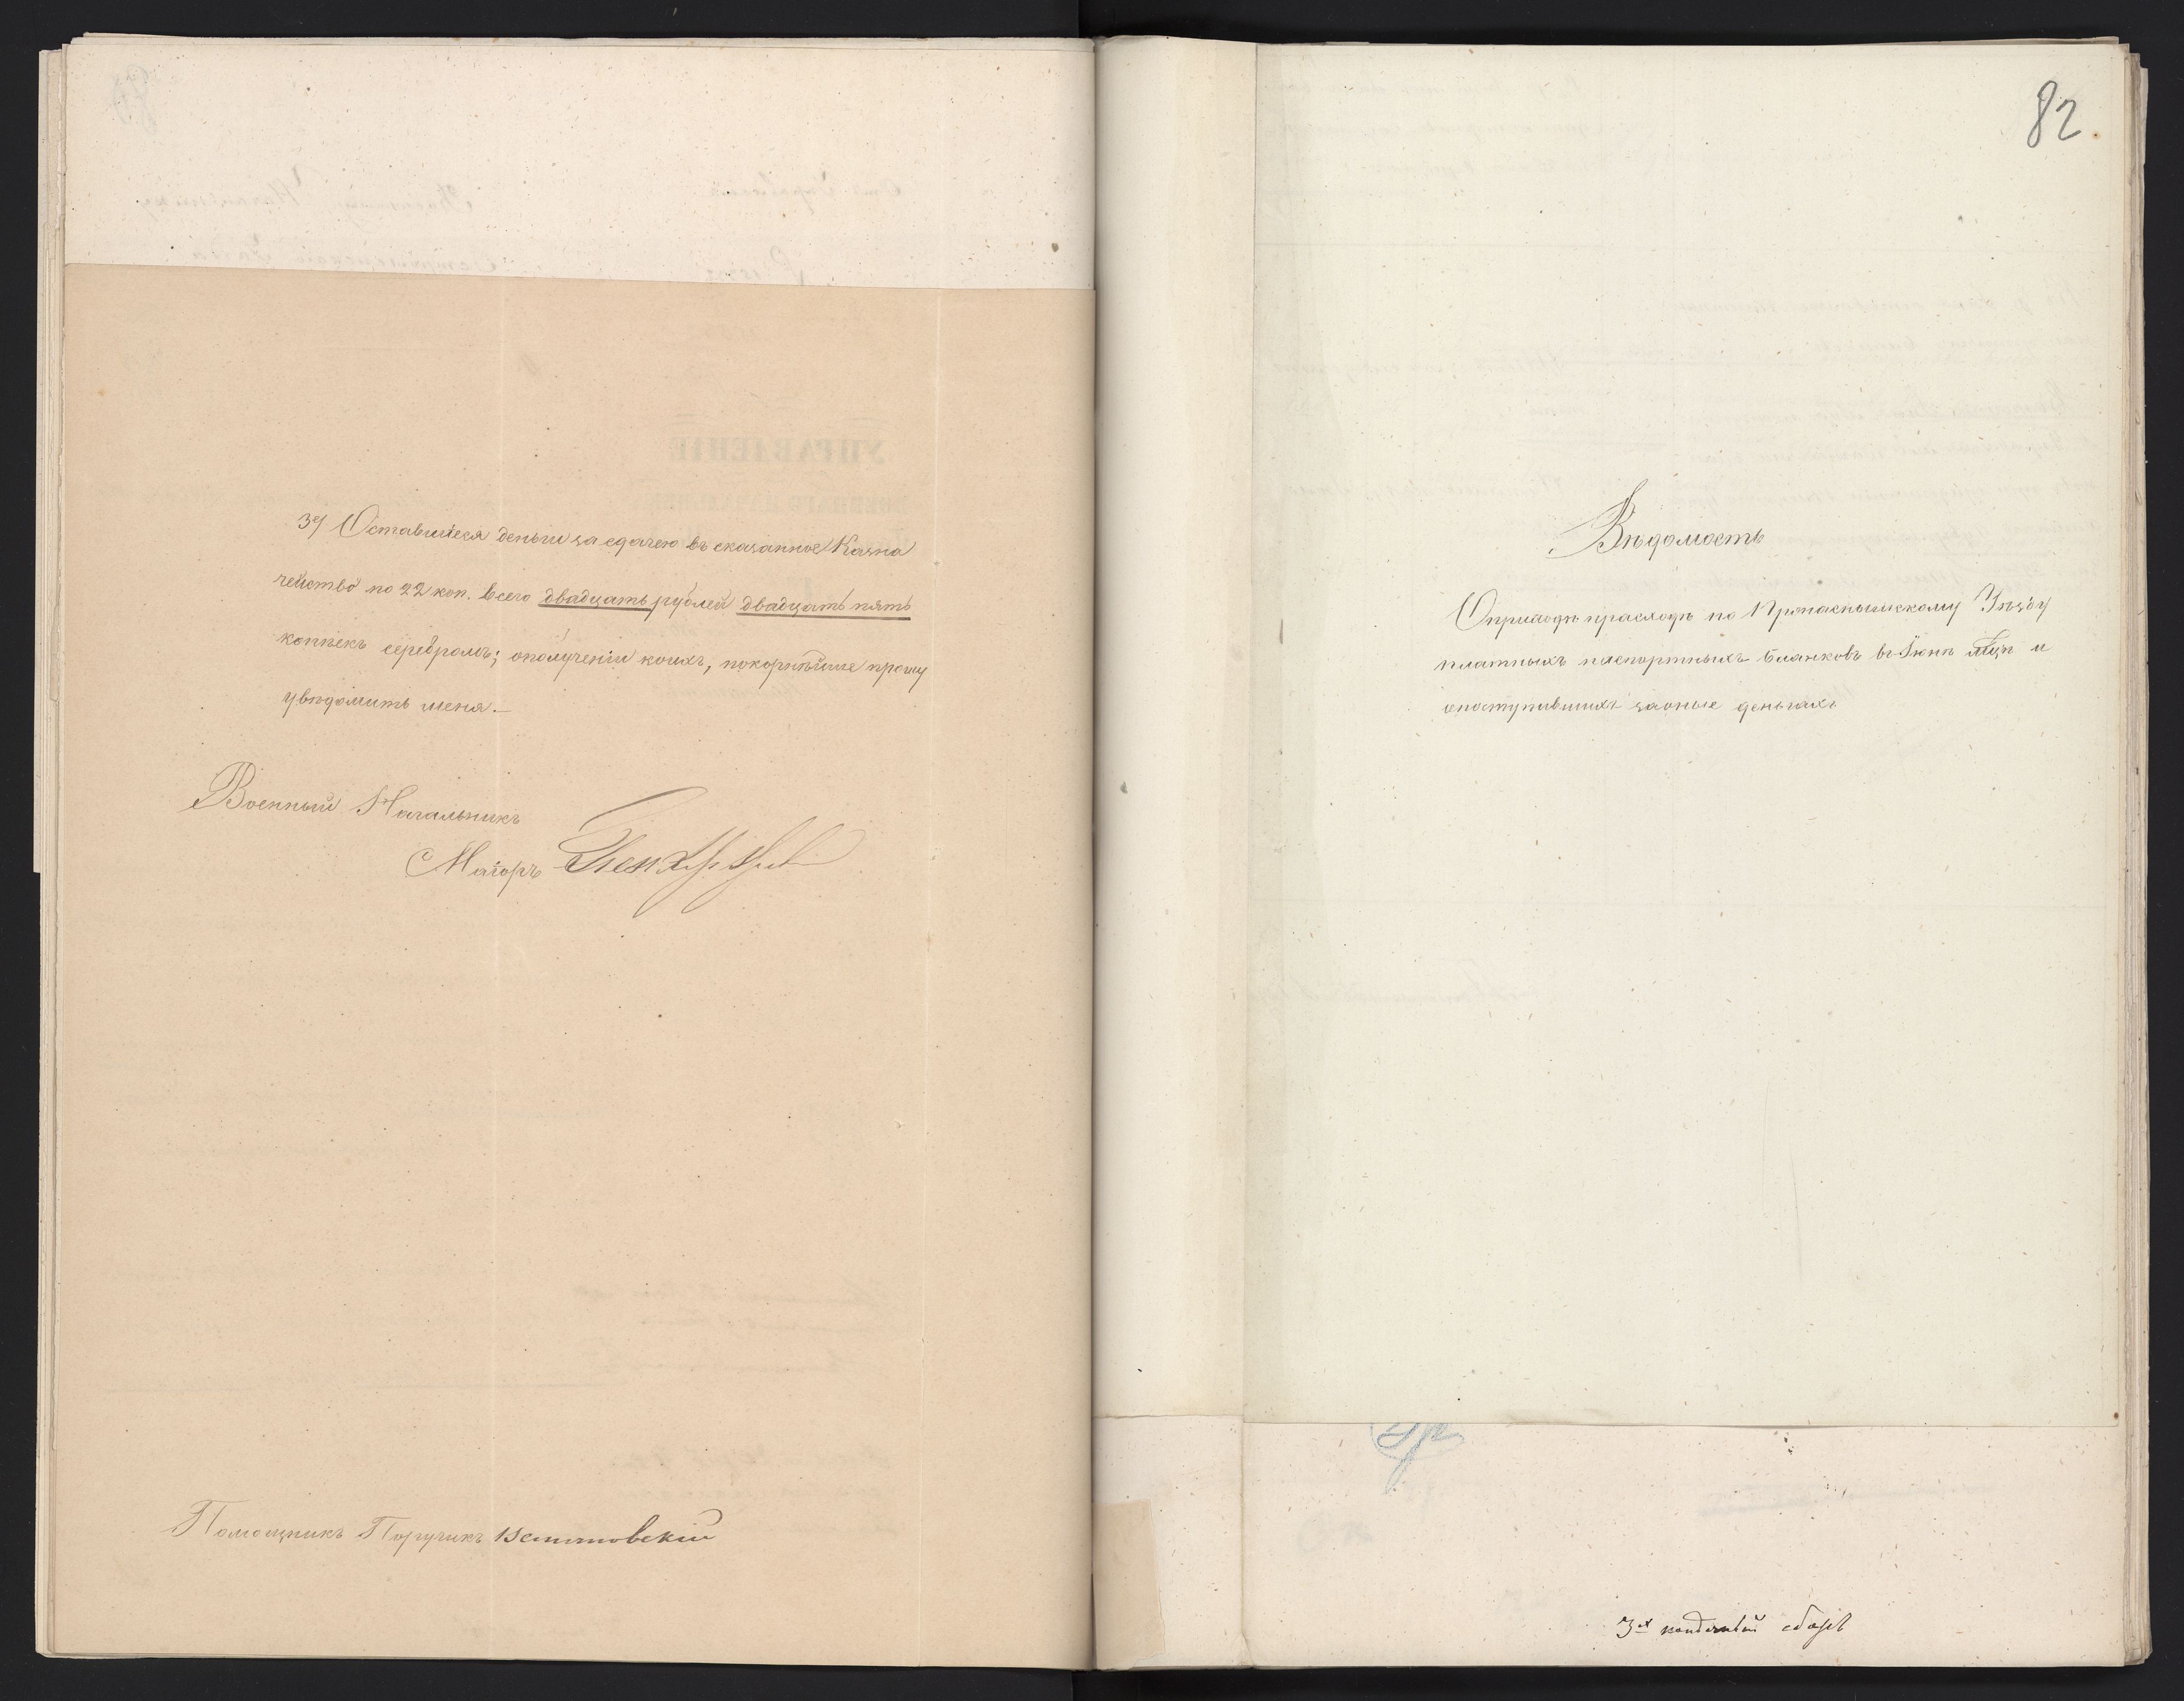 3) Оставшіеся деньги за сдачею въ сказанное Казна
чейство по 22 коп. всего двадцать рублей двадцать пять
копѣекъ серебромъ; ополученіи коихъ, покорнѣйше прошу
увѣдомить меня.—
Военный Начальникъ
Маіоръ
Помощникъ Поручикъ
82
Вѣдомость
Оприходѣ ирасходѣ по Пропаснышскому Уѣзду
платныхъ паспортныхъ бланковъ въ Іюнѣ мцѣ и
опоступившихъ заоные деньгахъ
УПРАВЛЕНІЕ